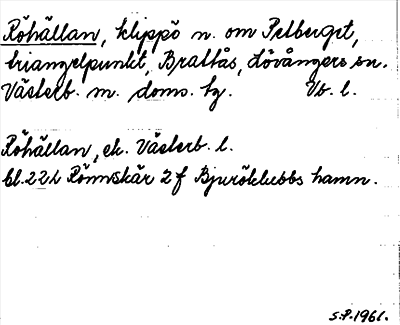 Röhällan, klippö n. om Pelberget,
triangelpunkt, Bratfås, Lövångers sn.
Västerb. m. doms. tg. Vb. l.
Röhällan, ek. Västerb. l.
bl. 22 L Rönnskär 2 f Bjuröklubbs hamn.
S.P. 1961.